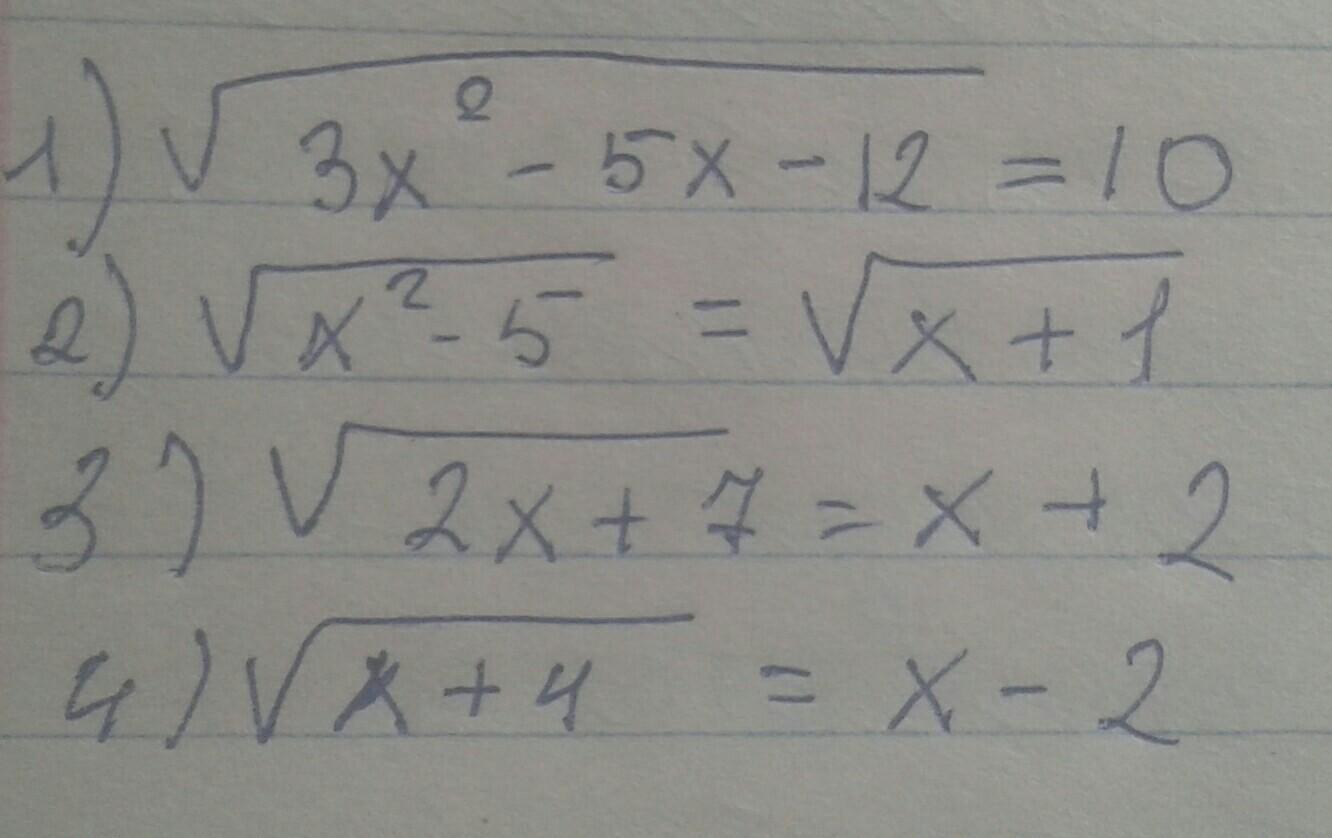 1) √(3x² - 5x - 12) = 10
2) √(x² - 5) = √(x + 1)
3) √(2x + 7) = x + 2
4) √(x + 4) = x - 2